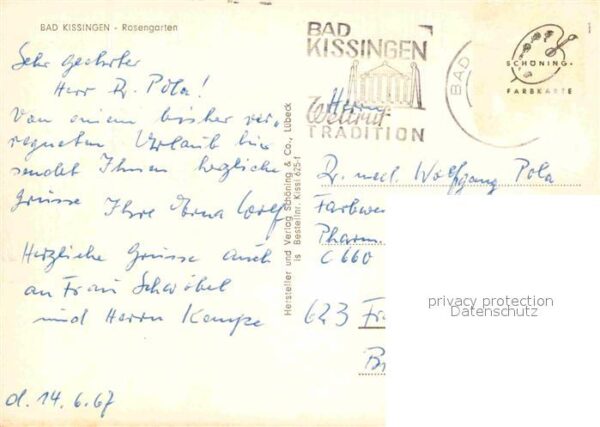 BAD KISSINGEN - Rosengarten
Sehr geehrter
Herr Dr. Pola!
Von einem bisher ver-
regneten Urlaub hier
sendet Ihnen herzliche
Grüsse Ihre Erna Wolf
Herzliche Grüsse auch
an Frau Schwöbel
und Herrn Kempe
d. 14.6.67
Hersteller und Verlag Schöning & Co., Lübeck
is Bestellnr. Kissi 625-f
BAD
KISSINGEN
Weltruf
TRADITION
BAD
SCHÖNING-
FARBKARTE
Herrn
Dr. med. Wolfgang Pola
Farbwe
Pharm.
C 660
623 Fr
Br
privacy protection
Datenschutz